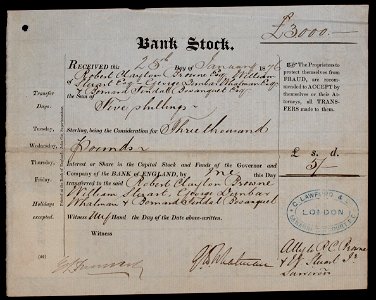 £3000—
Bank Stock.
RECEIVED this 25th Day of January 1876
Robert Clayton Browne Esq William
Stuart Esq George Dunbar Whatman Esq
& Bernard Tindal Bosanquet Esq
the Sum of Five shillings
Sterling, being the Consideration for Three thousand
Pounds
Interest or Share in the Capital Stock and Funds of the Governor and
Company of the BANK OF ENGLAND, by me this Day
transferred to the said Robert Clayton Browne
William Stuart, George Dunbar
Whatman & Bernard Tindal Bosanquet
Witness my Hand the Day of the Date above-written.
Witness
Transfer
Days.
Tuesday
Wednesday
Thursday
Friday
Holidays
excepted
☞ The Proprietors
to protect themselves
from FRAUD, are recommended
to ACCEPT by
themselves or their Attorneys,
all TRANSFERS
made to them.
£ s. d.
5/-
C. LAWFORD &
LONDON
G D Whatman
Attys R C Browne
& W Stuart